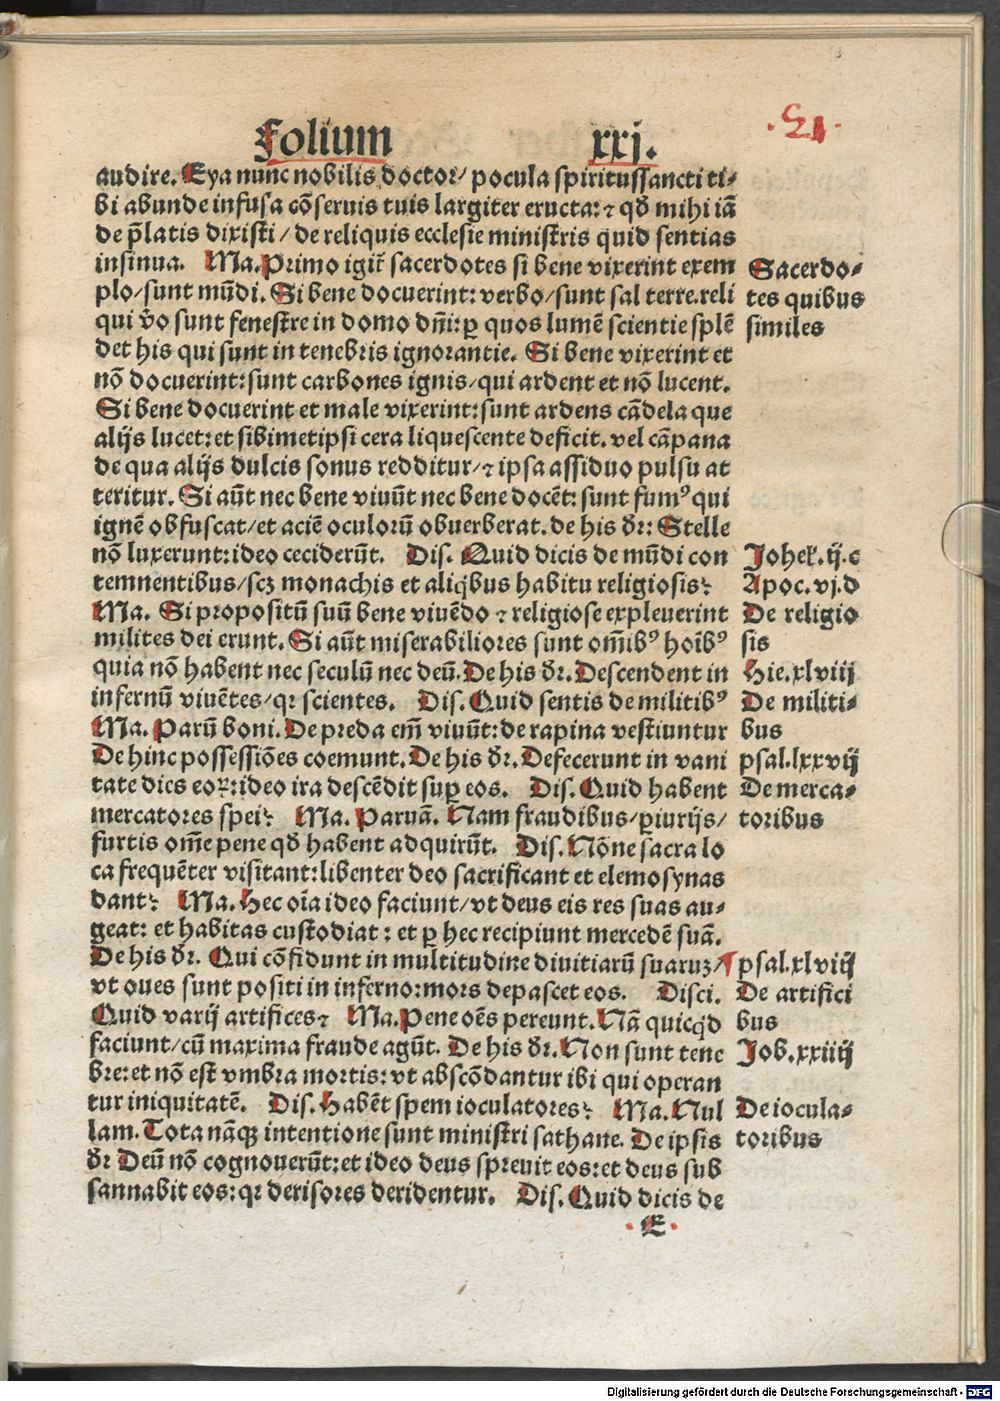 Folium xxj.
21
audire. Eya nunc nobilis doctor/ pocula spiritussancti ti-
bi abunde infusa cōseruis tuis largiter eructa: ⁊ qđ mihi iā
de p̄latis dixisti/ de reliquis ecclesie ministris quid sentias
insinua. Ma. Primo igit̄ sacerdotes si bene vixerint exem
plo/ sunt mūdi. Si bene docuerint: verbo/ sunt sal terre. reli
qui v̄o sunt fenestre in domo dn̄i: ꝑ quos lumē scientie splē
det his qui sunt in tenebris ignorantie. Si bene vixerint et
nō docuerint: sunt carbones ignis/ qui ardent et nō lucent.
Si bene docuerint et male vixerint: sunt ardens cādela que
alijs lucet: et sibimetipsi cera liquescente deficit. vel cāpana
de qua alijs dulcis sonus redditur/ ⁊ ipsa assiduo pulsu at
teritur. Si aūt nec bene viuūt nec bene docēt: sunt fumꝰ qui
ignē obfuscat/ et aciē oculorū obuerberat. de his dr̄: Stelle
nō luxerunt: ideo ceciderūt. Dis. Quid dicis de mūdi con
temnentibus/ scꝫ monachis et aliq̄bus habitu religiosis?
Ma. Si propositū suū bene viuēdo ⁊ religiose expleuerint
milites dei erunt. Si aūt miserabiliores sunt om̄ibꝰ hoībꝰ
quia nō habent nec seculū nec deū. De his dr̄. Descendent in
infernū viuētes/ qr scientes. Dis. Quid sentis de militibꝰ
Ma. Parū boni. De preda em̄ viuūt: de rapina vestiuntur
De hinc possessiōes coemunt. De his dr̄. Defecerunt in vani
tate dies eoꝝ: ideo ira descēdit suꝑ eos. Dis. Quid habent
mercatores spei? Ma. Paruā. Nam fraudibus/ ꝑiurijs/
furtis om̄e pene qđ habent adquirūt. Dis. Nōne sacra lo
ca frequēter visitant: libenter deo sacrificant et elemosynas
dant? Ma. Hec oīa ideo faciunt/ vt deus eis res suas au-
geat: et habitas custodiat: et ꝑ hec recipiunt mercedē suā.
De his dr̄. Qui cōfidunt in multitudine diuitiarū suaruꝫ/
vt oues sunt positi in inferno: mors depascet eos. Disci.
Quid varij artifices? Ma. Pene oēs pereunt. Nā quicq̄d
faciunt/ cū maxima fraude agūt. De his dr̄. Non sunt tene
bre: et nō est vmbra mortis: vt abscōdantur ibi qui operan
tur iniquitatē. Dis. Habēt spem ioculatores? Ma. Nul
lam. Tota nāqꝫ intentione sunt ministri sathane. De ipsis
dr̄ Deū nō cognouerūt: et ideo deus spreuit eos: et deus sub
sannabit eos: qr derisores deridentur. Dis. Quid dicis de
E
Sacerdo-
tes quibus
similes
Johel. ij. c
Apoc. vj. d
De religio
sis
Hie. xlviij
De militi-
bus
psal. lxxvij
De merca-
toribus
psal. xlviij
De artifici
bus
Job. xxiiij
De iocula-
toribus
Digitalisierung gefördert durch die Deutsche Forschungsgemeinschaft - DFG